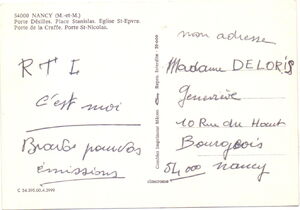 54000 NANCY (M.-et-M.)
Porte Désilles. Place Stanislas. Eglise St-Epvre.
Porte de la Craffe. Porte St-Nicolas.
R T L
C'est moi
Bravo pour vos
émissions
C 54.395.00.4.2999
Combier Imprimeur Mâcon
mon adresse
Madame DELORIS
Geneviève
10 Rue du Haut
Bourgeois
54000 Nancy